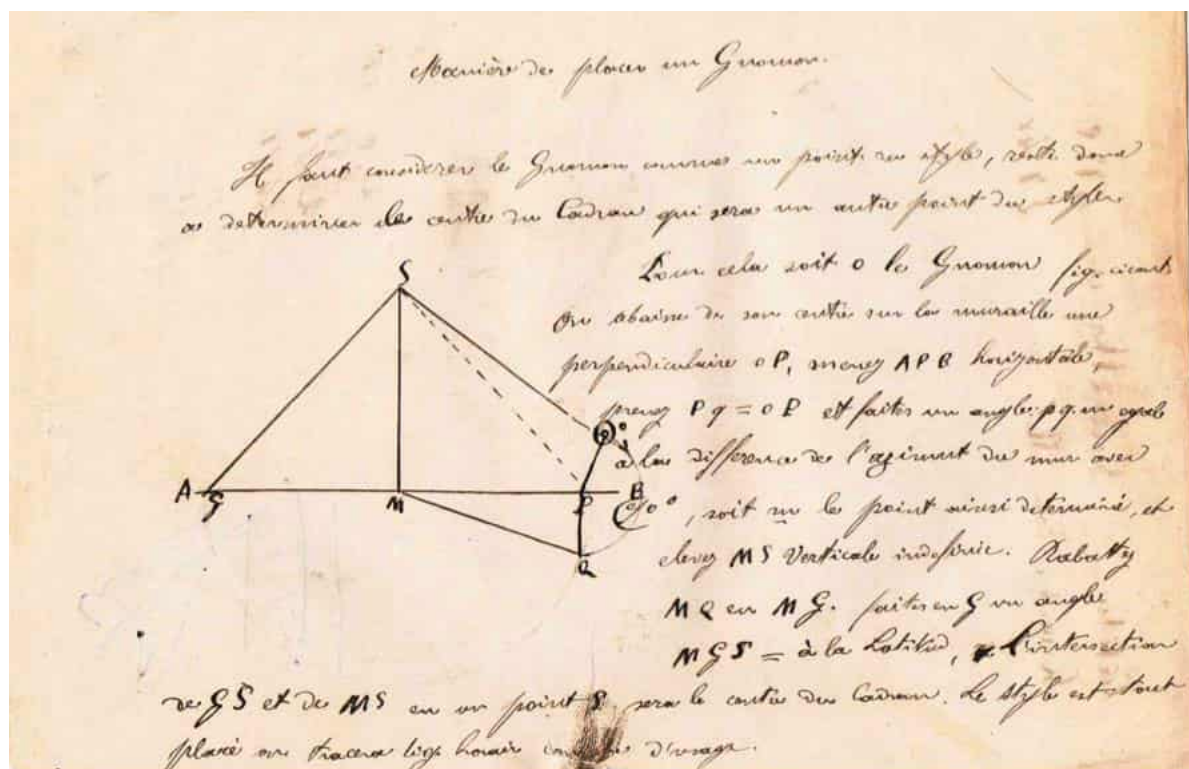 Manière de placer un Gnomon.
Il faut considerer le Gnomon comme un point du style, reste donc
a determiner le centre du Cadran qui sera un autre point du style.
Pour cela soit o le Gnomon fig.
On abaisse de son centre sur la muraille une
perpendiculaire oP, menez APB horizontale,
prenez Pq = oP et faites un angle pqm egale
à la difference de l'azimut du mur avec
90°, soit m le point ainsi determiné, et
elevez MS Verticale indefinie. Rabattez
MQ en MG. faites en G un angle
MGS = à la Latitud, L'intersection
de GS et de MS en un point S sera le centre du Cadran. Le style est tout
placé on tracera lig. horair d'usage.
S
o
A
G
M
P
B
Q